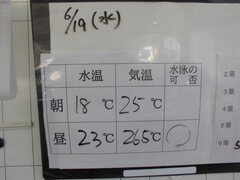 6/19(水)
水温 気温 水泳の可否
朝 18℃ 25℃
昼 23℃ 26.5℃ ○
2限
3限
4限
5限
6限 5